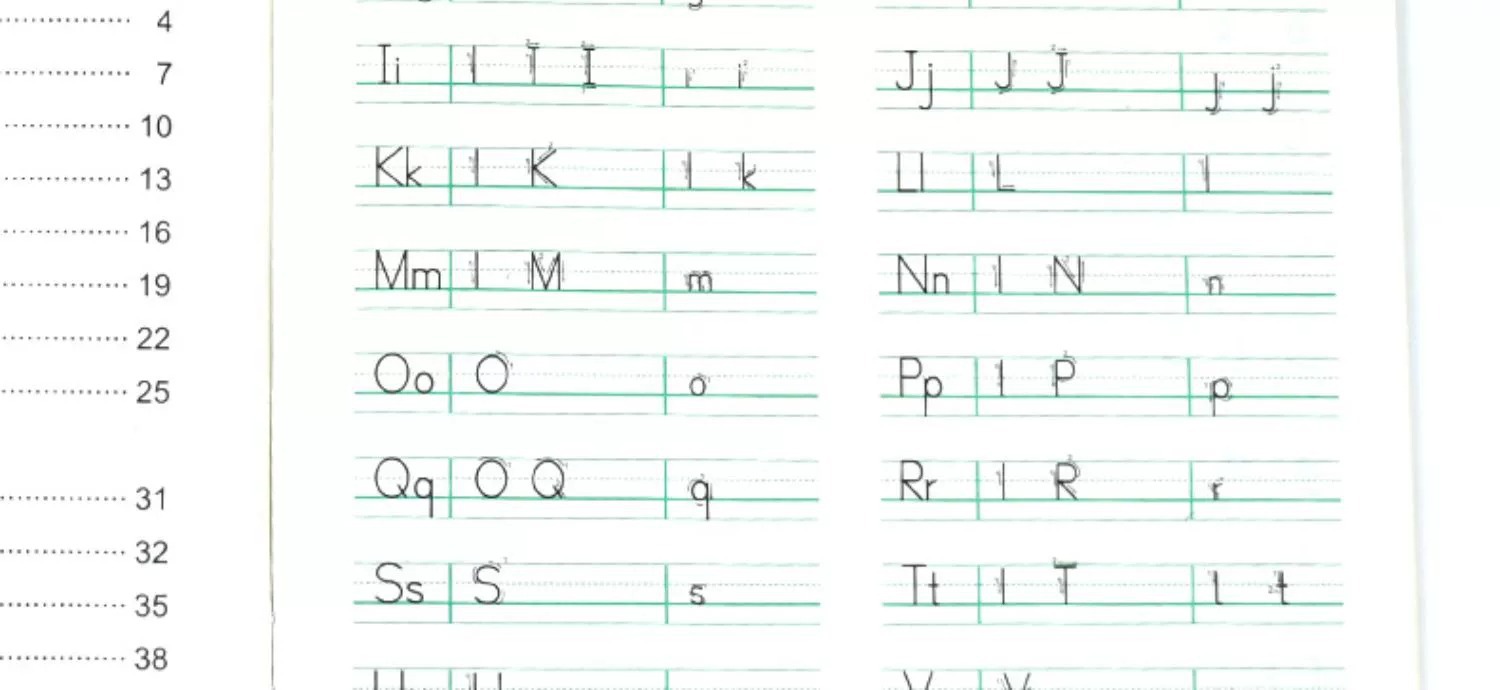 4
7
10
13
16
19
22
25
31
32
35
38
Ii I I I ı i
Jj J J j j
Kk l K l k
Ll L l
Mm l M m
Nn l N n
Oo O o
Pp l P p
Qq O Q q
Rr l R r
Ss S s
Tt l T l t